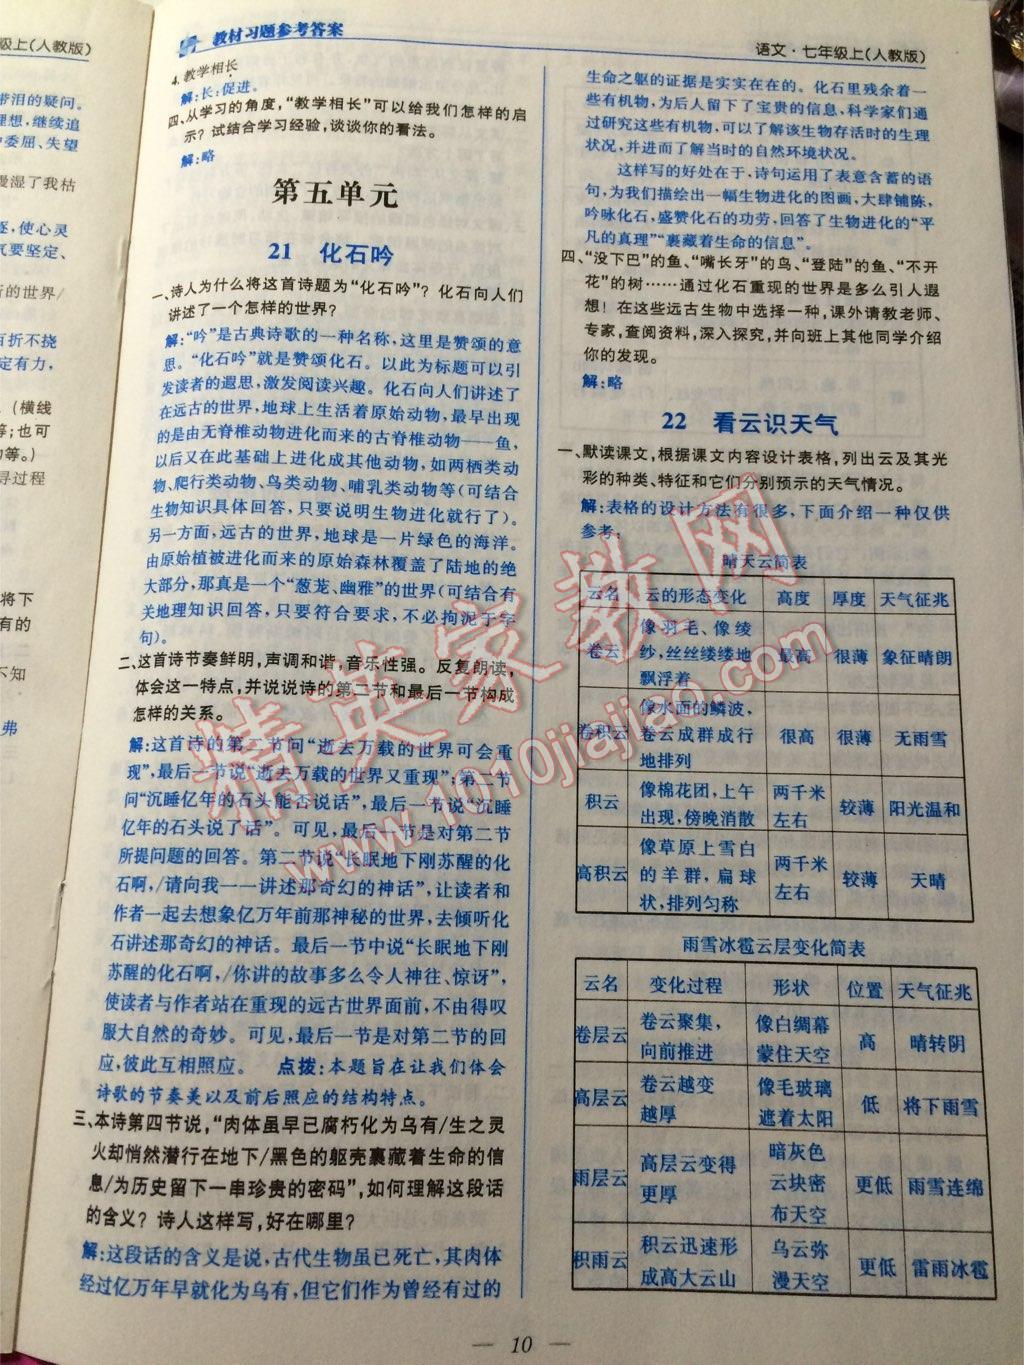 级上(人教版)
带泪的疑问。
理想,继续追
中委屈、失望
漫湿了我枯
逐,使心灵
气要坚定、
新的世界/
百折不挠
定有力,
。(横线
等;也可
物等。)
寻过程
将下
有的
不知
弗
教材习题参考答案
语文·七年级上(人教版)
4.教学相长
解:长:促进。
四、从学习的角度,“教学相长”可以给我们怎样的启
示?试结合学习经验,谈谈你的看法。
解:略
第五单元
21 化石吟
一、诗人为什么将这首诗题为“化石吟”?化石向人们
讲述了一个怎样的世界?
解:“吟”是古典诗歌的一种名称,这里是赞颂的意
思。“化石吟”就是赞颂化石。以此为标题可以引
发读者的遐思,激发阅读兴趣。化石向人们讲述了
在远古的世界,地球上生活着原始动物,最早出现
的是由无脊椎动物进化而来的古脊椎动物——鱼,
以后又在此基础上进化成其他动物,如两栖类动
物、爬行类动物、鸟类动物、哺乳类动物等(可结合
生物知识具体回答,只要说明生物进化就行了)。
另一方面,远古的世界,地球是一片绿色的海洋。
由原始植被进化而来的原始森林覆盖了陆地的绝
大部分,那真是一个“葱茏、幽雅”的世界(可结合有
关地理知识回答,只要符合要求,不必拘泥于字
句)。
二、这首诗节奏鲜明,声调和谐,音乐性强。反复朗读,
体会这一特点,并说说诗的第二节和最后一节构成
怎样的关系。
解:这首诗的第二节问“逝去万载的世界可会重
现”,最后一节说“逝去万载的世界又重现”;第二节
问“沉睡亿年的石头能否说话”,最后一节说“沉睡
亿年的石头说了话”。可见,最后一节是对第二节
所提问题的回答。第二节说“长眠地下刚苏醒的化
石啊,/请向我一一讲述那奇幻的神话”,让读者和
作者一起去想象亿万年前那神秘的世界,去倾听化
石讲述那奇幻的神话。最后一节中说“长眠地下刚
苏醒的化石啊,/你讲的故事多么令人神往、惊讶”,
使读者与作者站在重现的远古世界面前,不由得叹
服大自然的奇妙。可见,最后一节是对第二节的回
应,彼此互相照应。 点拨:本题旨在让我们体会
诗歌的节奏美以及前后照应的结构特点。
三、本诗第四节说,“肉体虽早已腐朽化为乌有/生之灵
火却悄然潜行在地下/黑色的躯壳裹藏着生命的信
息/为历史留下一串珍贵的密码”,如何理解这段话
的含义?诗人这样写,好在哪里?
解:这段话的含义是说,古代生物虽已死亡,其肉体
经过亿万年早就化为乌有,但它们作为曾经有过的
生命之躯的证据是实实在在的。化石里残余着一
些有机物,为后人留下了宝贵的信息,科学家们通
过研究这些有机物,可以了解该生物存活时的生理
状况,并进而了解当时的自然环境状况。
这样写的好处在于,诗句运用了表意含蓄的语
句,为我们描绘出一幅生物进化的图画,大肆铺陈,
吟咏化石,盛赞化石的功劳,回答了生物进化的“平
凡的真理”“裹藏着生命的信息”。
四、“没下巴”的鱼、“嘴长牙”的鸟、“登陆”的鱼、“不开
花”的树……通过化石重现的世界是多么引人遐
想!在这些远古生物中选择一种,课外请教老师、
专家,查阅资料,深入探究,并向班上其他同学介绍
你的发现。
解:略
22 看云识天气
一、默读课文,根据课文内容设计表格,列出云及其光
彩的种类、特征和它们分别预示的天气情况。
解:表格的设计方法有很多,下面介绍一种仅供
参考:
晴天云简表
云名 云的形态变化 高度 厚度 天气征兆
卷云 像羽毛、像绫纱,丝丝缕缕地飘浮着 最高 很薄 象征晴朗
卷积云 像水面的鳞波,卷云成群成行地排列 很高 很薄 无雨雪
积云 像棉花团,上午出现,傍晚消散 两千米左右 较薄 阳光温和
高积云 像草原上雪白的羊群,扁球状,排列匀称 两千米左右 较薄 天晴
雨雪冰雹云层变化简表
云名 变化过程 形状 位置 天气征兆
卷层云 卷云聚集,向前推进 像白绸幕蒙住天空 高 晴转阴
高层云 卷云越变越厚 像毛玻璃遮着太阳 低 将下雨雪
雨层云 高层云变得更厚 暗灰色云块密布天空 更低 雨雪连绵
积雨云 积云迅速形成高大云山 乌云弥漫天空 更低 雷雨冰雹
— 10 —
精英家教网
www.1010jiajiao.com